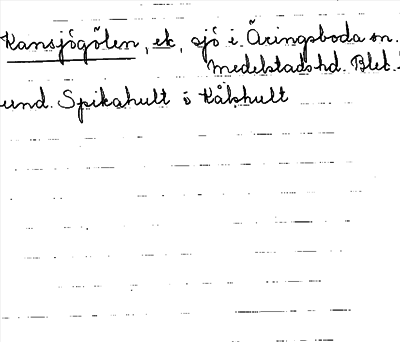 Kansjögölen, ek, sjö i Äringsboda sn.
Medelstads hd. Blek.
und. Spikahult o Kåkhult